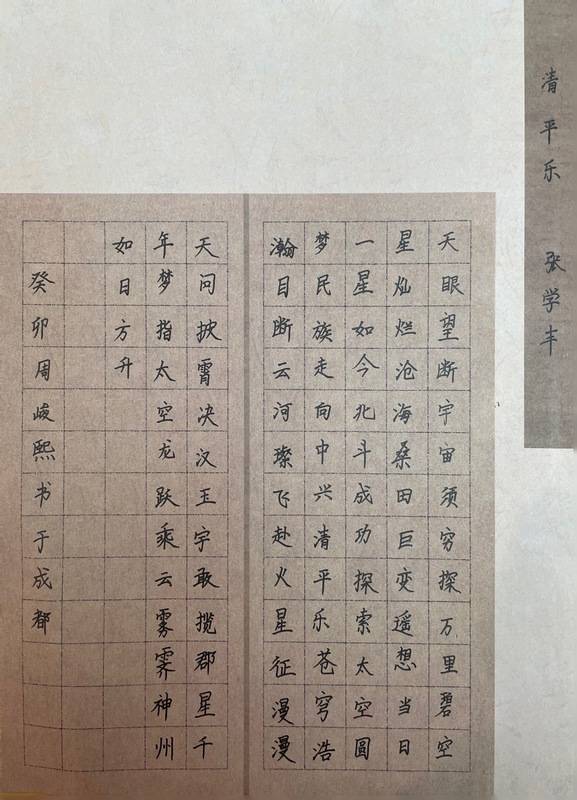 清平乐 张学丰
天眼望断宇宙须穷探万里碧空
星灿烂沧海桑田巨变遥想当日
一星如今北斗成功探索太空圆
梦民族走向中兴清平乐苍穹浩
瀚目断云河璨飞赴火星征漫漫
天问披霄决汉玉宇敢揽郡星千
年梦指太空龙跃乘云雾霁神州
如日方升
癸卯周峻熙书于成都